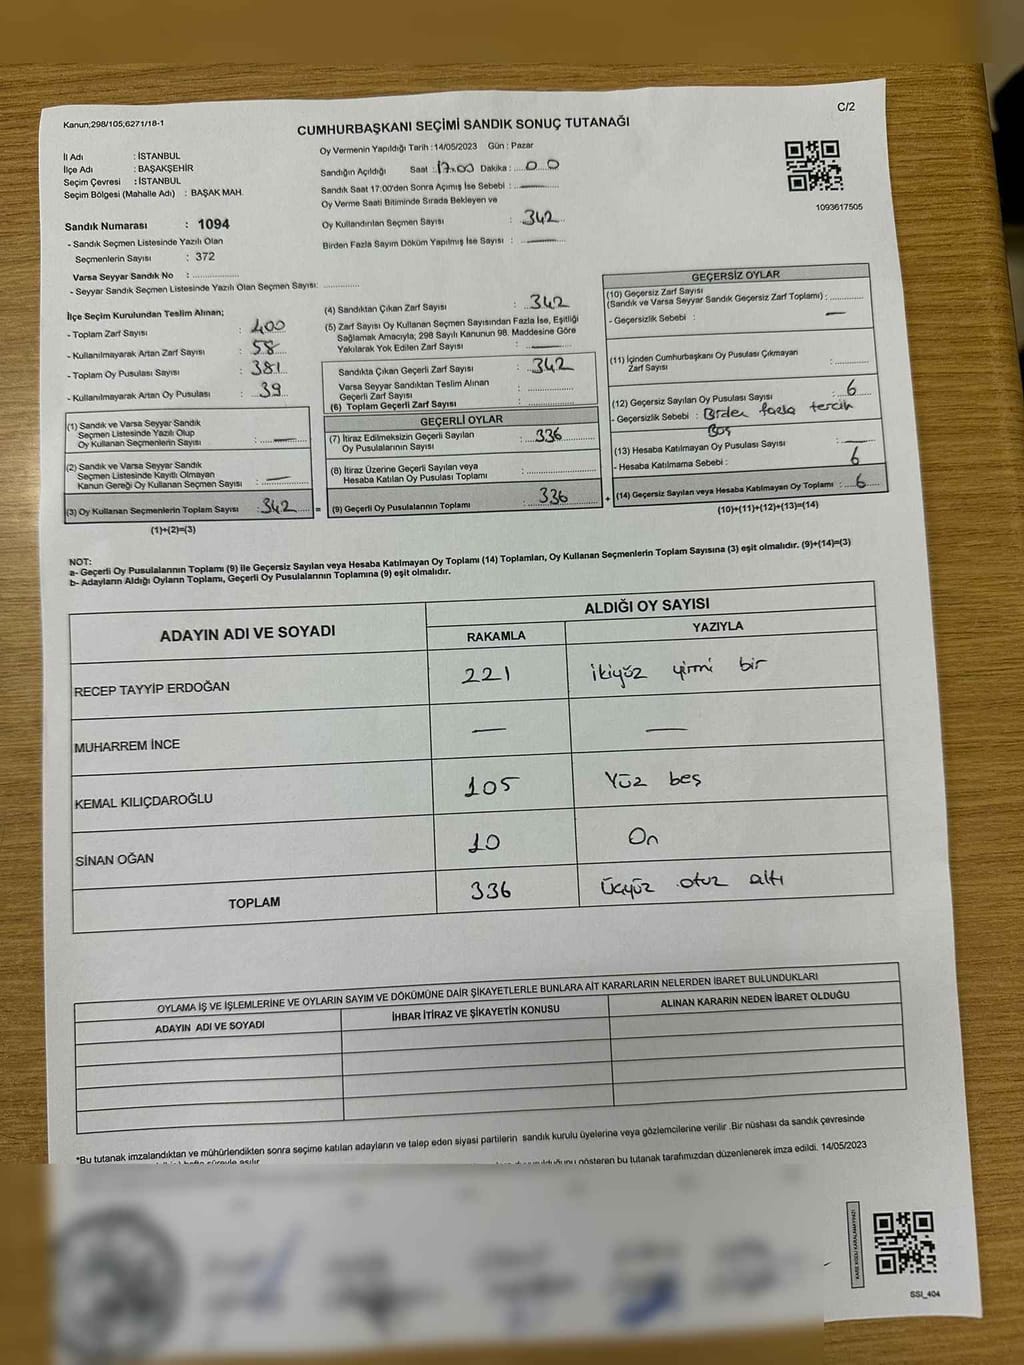 Kanun;298/105;6271/18-1
C/2
CUMHURBAŞKANI SEÇİMİ SANDIK SONUÇ TUTANAĞI
İl Adı : İSTANBUL
İlçe Adı : BAŞAKŞEHİR
Seçim Çevresi : İSTANBUL
Seçim Bölgesi (Mahalle Adı) : BAŞAK MAH.
Sandık Numarası : 1094
- Sandık Seçmen Listesinde Yazılı Olan
Seçmenlerin Sayısı : 372
Varsa Seyyar Sandık No :
- Seyyar Sandık Seçmen Listesinde Yazılı Olan Seçmen Sayısı:
Oy Vermenin Yapıldığı Tarih : 14/05/2023 Gün : Pazar
Sandığın Açıldığı Saat : 17.00 Dakika : 00
Sandık Saat 17.00'den Sonra Açımış İse Sebebi :
Oy Verme Saati Bitiminde Sırada Bekleyen ve
Oy Kullandırılan Seçmen Sayısı : 342
Birden Fazla Sayım Döküm Yapılmış İse Sayısı :
1093617505
İlçe Seçim Kurulundan Teslim Alınan;
- Toplam Zarf Sayısı : 400
- Kullanılmayarak Artan Zarf Sayısı : 58
- Toplam Oy Pusulası Sayısı : 381
- Kullanılmayarak Artan Oy Pusulası : 39
(1) Sandık ve Varsa Seyyar Sandık
Seçmen Listesinde Yazılı Olup
Oy Kullanan Seçmenlerin Sayısı :
(2) Sandık ve Varsa Seyyar Sandık
Seçmen Listesinde Kayıtlı Olmayan
Kanun Gereği Oy Kullanan Seçmen Sayısı :
(3) Oy Kullanan Seçmenlerin Toplam Sayısı : 342
(1)+(2)=(3)
(4) Sandıktan Çıkan Zarf Sayısı : 342
(5) Zarf Sayısı Oy Kullanan Seçmen Sayısından Fazla İse, Eşitliği
Sağlamak Amacıyla; 298 Sayılı Kanunun 98. Maddesine Göre
Yakılarak Yok Edilen Zarf Sayısı :
Sandıkta Çıkan Geçerli Zarf Sayısı : 342
Varsa Seyyar Sandıktan Teslim Alınan
Geçerli Zarf Sayısı :
(6) Toplam Geçerli Zarf Sayısı :
GEÇERLİ OYLAR
(7) İtiraz Edilmeksizin Geçerli Sayılan
Oy Pusulalarının Sayısı : 336
(8) İtiraz Üzerine Geçerli Sayılan veya
Hesaba Katılan Oy Pusulası Toplamı :
= (9) Geçerli Oy Pusulalarının Toplamı : 336 +
GEÇERSİZ OYLAR
(10) Geçersiz Zarf Sayısı
(Sandık ve Varsa Seyyar Sandık Geçersiz Zarf Toplamı) :
- Geçersizlik Sebebi :
(11) İçinden Cumhurbaşkanı Oy Pusulası Çıkmayan
Zarf Sayısı :
(12) Geçersiz Sayılan Oy Pusulası Sayısı : 6
- Geçersizlik Sebebi : Birden fazla tercih
Boş
(13) Hesaba Katılmayan Oy Pusulası Sayısı :
- Hesaba Katılmama Sebebi : 6
(14) Geçersiz Sayılan veya Hesaba Katılmayan Oy Toplamı : 6
(10)+(11)+(12)+(13)=(14)
NOT:
a- Geçerli Oy Pusulalarının Toplamı (9) ile Geçersiz Sayılan veya Hesaba Katılmayan Oy Toplamı (14) Toplamları, Oy Kullanan Seçmenlerin Toplam Sayısına (3) eşit olmalıdır. (9)+(14)=(3)
b- Adayların Aldığı Oyların Toplamı, Geçerli Oy Pusulalarının Toplamına (9) eşit olmalıdır.
ADAYIN ADI VE SOYADI
ALDIĞI OY SAYISI
RAKAMLA YAZIYLA
RECEP TAYYİP ERDOĞAN 221 ikiyüz yirmi bir
MUHARREM İNCE
KEMAL KILIÇDAROĞLU 105 Yüz beş
SİNAN OĞAN 10 On
TOPLAM 336 Üçyüz otuz altı
OYLAMA İŞ VE İŞLEMLERİNE VE OYLARIN SAYIM VE DÖKÜMÜNE DAİR ŞİKAYETLERLE BUNLARA AİT KARARLARIN NELERDEN İBARET BULUNDUKLARI
ADAYIN ADI VE SOYADI İHBAR İTİRAZ VE ŞİKAYETİN KONUSU ALINAN KARARIN NEDEN İBARET OLDUĞU
*Bu tutanak imzalandıktan ve mühürlendikten sonra seçime katılan adayların ve talep eden siyasi partilerin sandık kurulu üyelerine veya gözlemcilerine verilir .Bir nüshası da sandık çevresinde
gösteren bu tutanak tarafımızdan düzenlenerek imza edildi. 14/05/2023
SSI_404